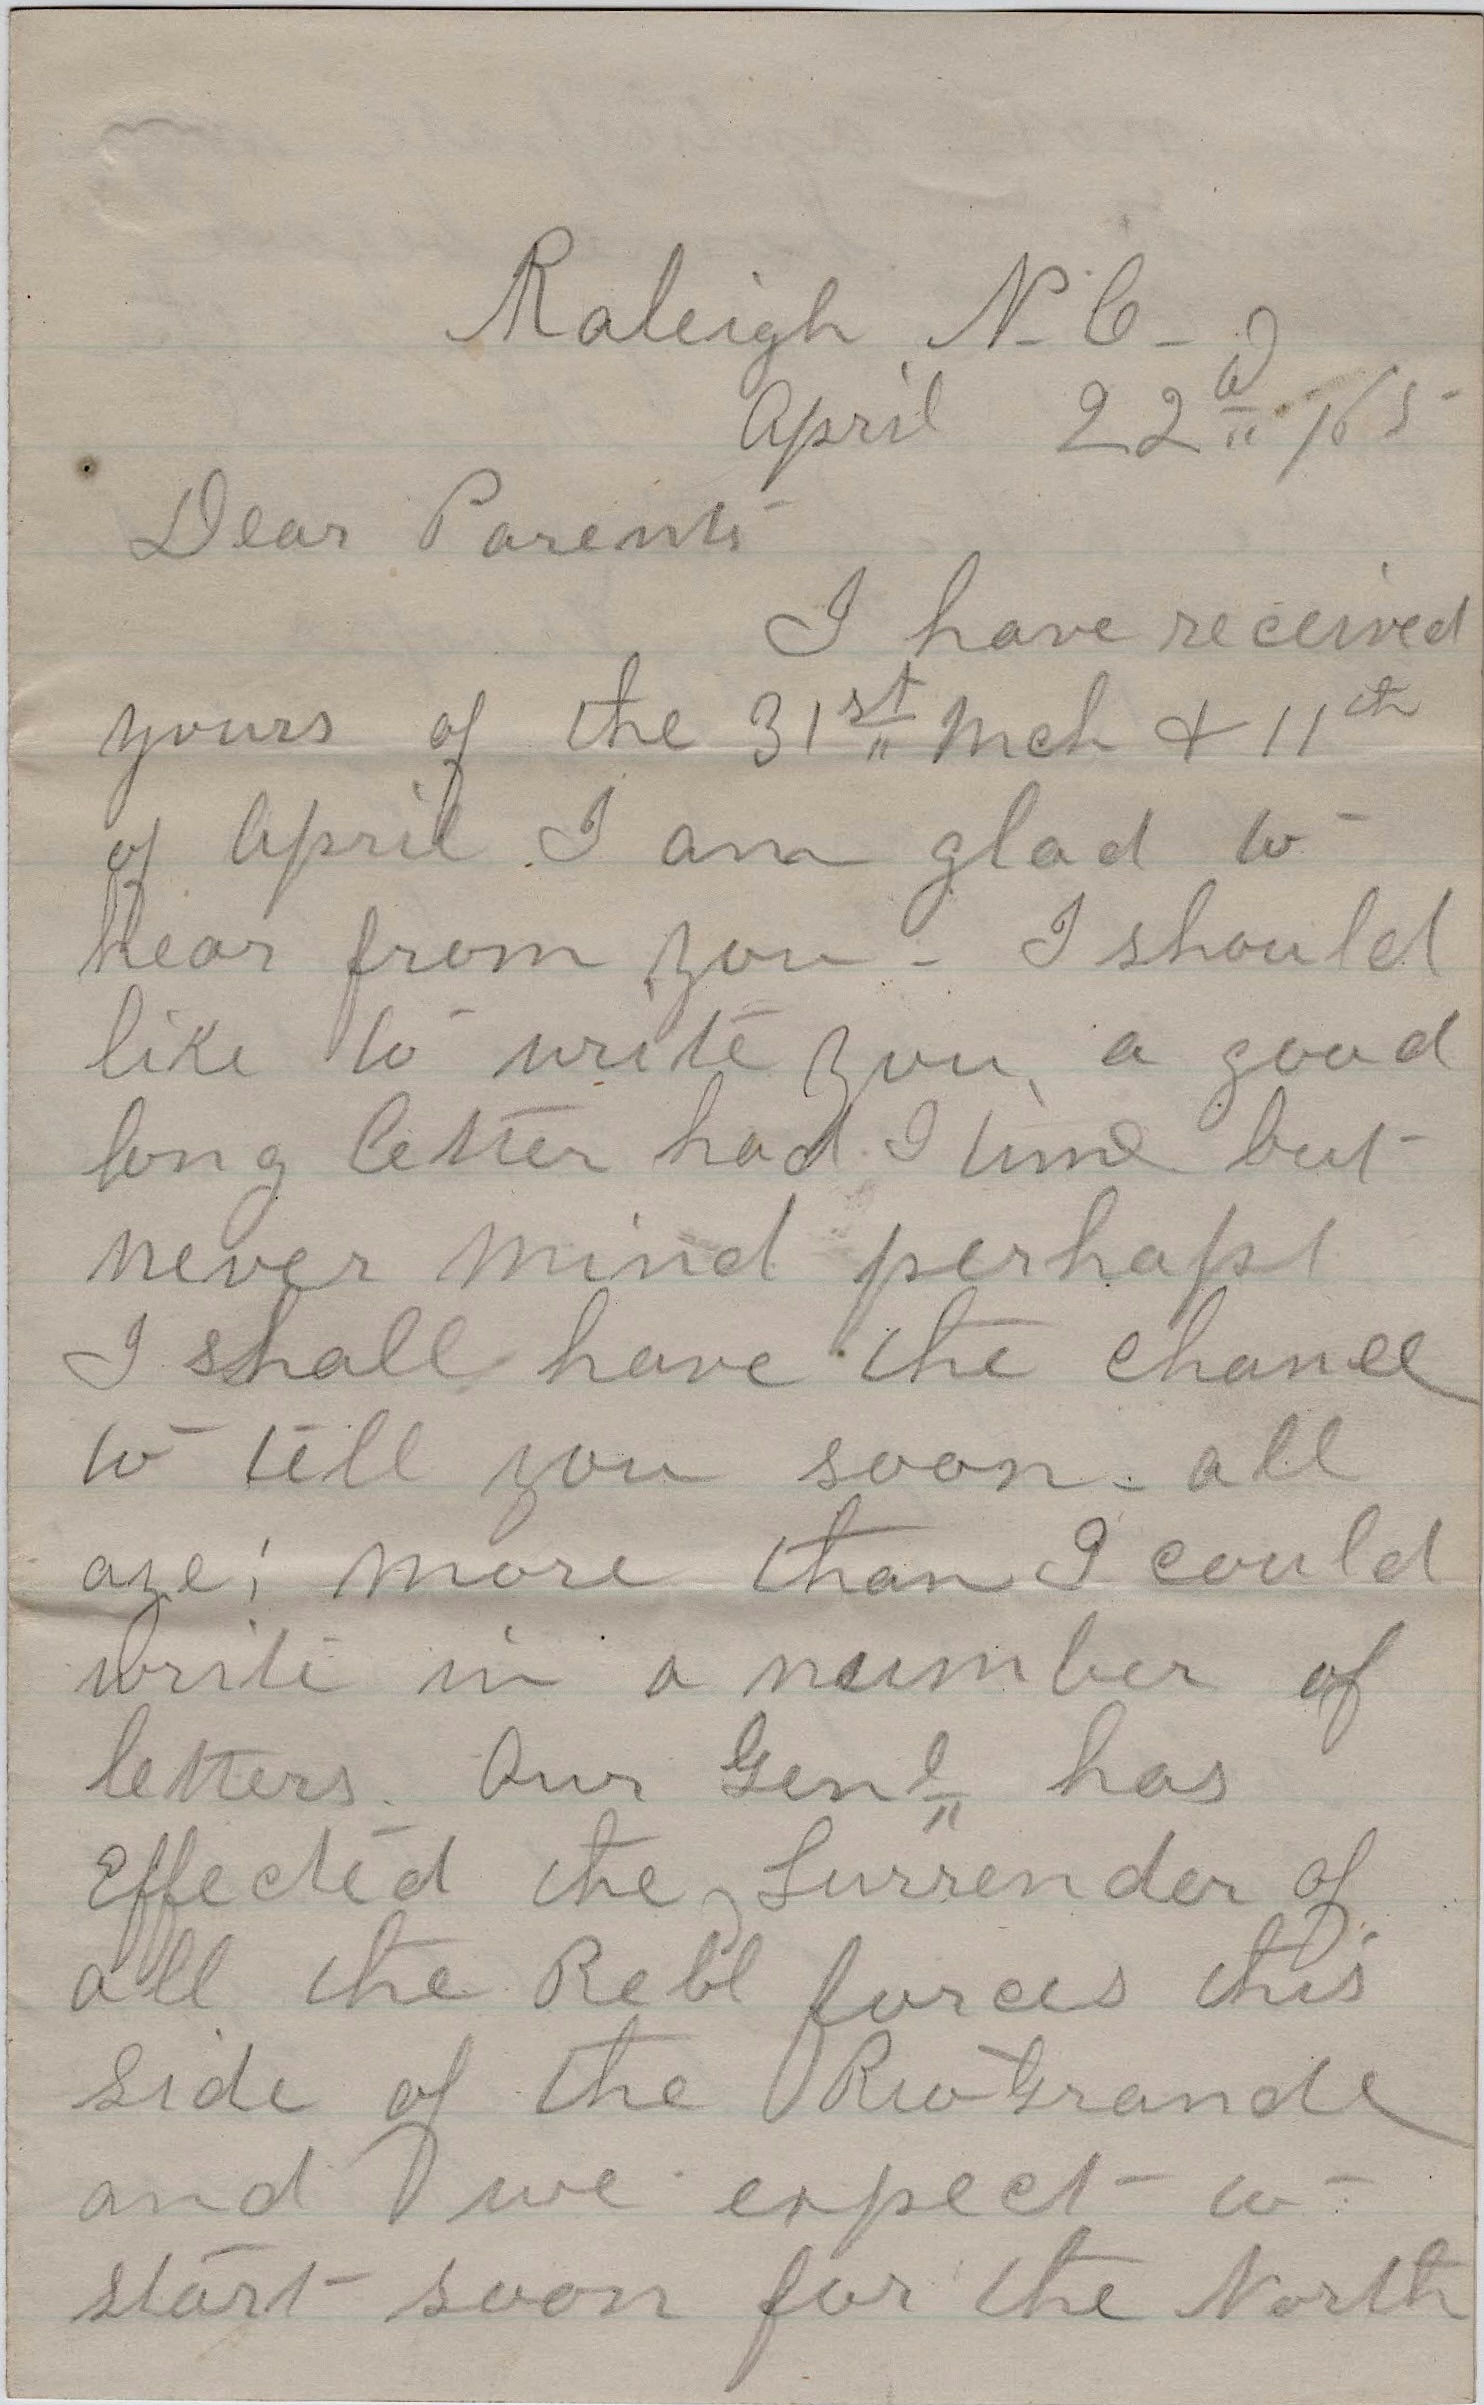 Raleigh N. C.
April 22d /65
Dear Parents
I have received
yours of the 31st Mch & 11th
of April I am glad to
hear from you - I should
like to write you a good
long letter had I time but
never mind perhaps
I shall have the chance
to tell you soon - all
aye; more than I could
write in a number of
letters. Our Genl has
Effected the Surrender of
all the Rebl forces this
side of the Rio Grande
and we expect to
start soon for the North